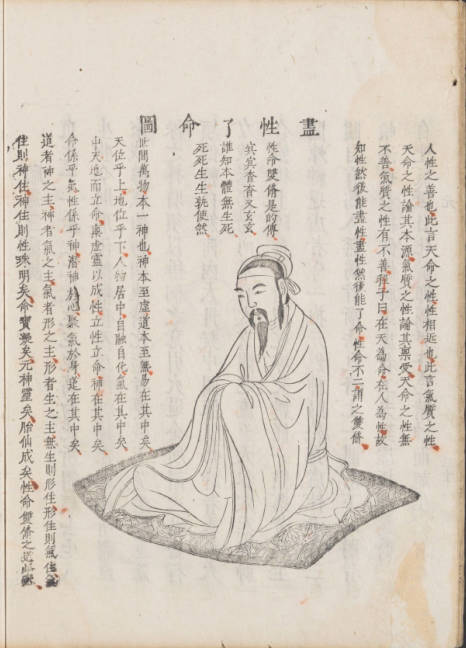 盡性了命圖
人性之善也此言天命之性性相近也此言氣質之性
天命之性論其本源氣質之性論其稟受天命之性無
不善氣質之性有不善程子曰在天為命在人為性故
知性然後能盡性盡性然後能了命性命不二謂之雙脩
性命雙脩是的傳
冥冥杳杳又玄玄
誰知本體無生死
死死生生孰使然
世間萬物本一神也神本至虛道本至無易在其中矣
天位乎上地位乎下人物居中自融自化氣在其中矣
中天地而立命稟虛靈以成性立性立命神在其中矣
命係乎氣性係乎神潛神於心聚氣於身道在其中矣
道者神之主神者氣之主氣者形之主形者生之主無生則形住形住則氣住
住則神住神住則性珠明矣命寶凝矣元神靈矣胎仙成矣性命雙脩之道